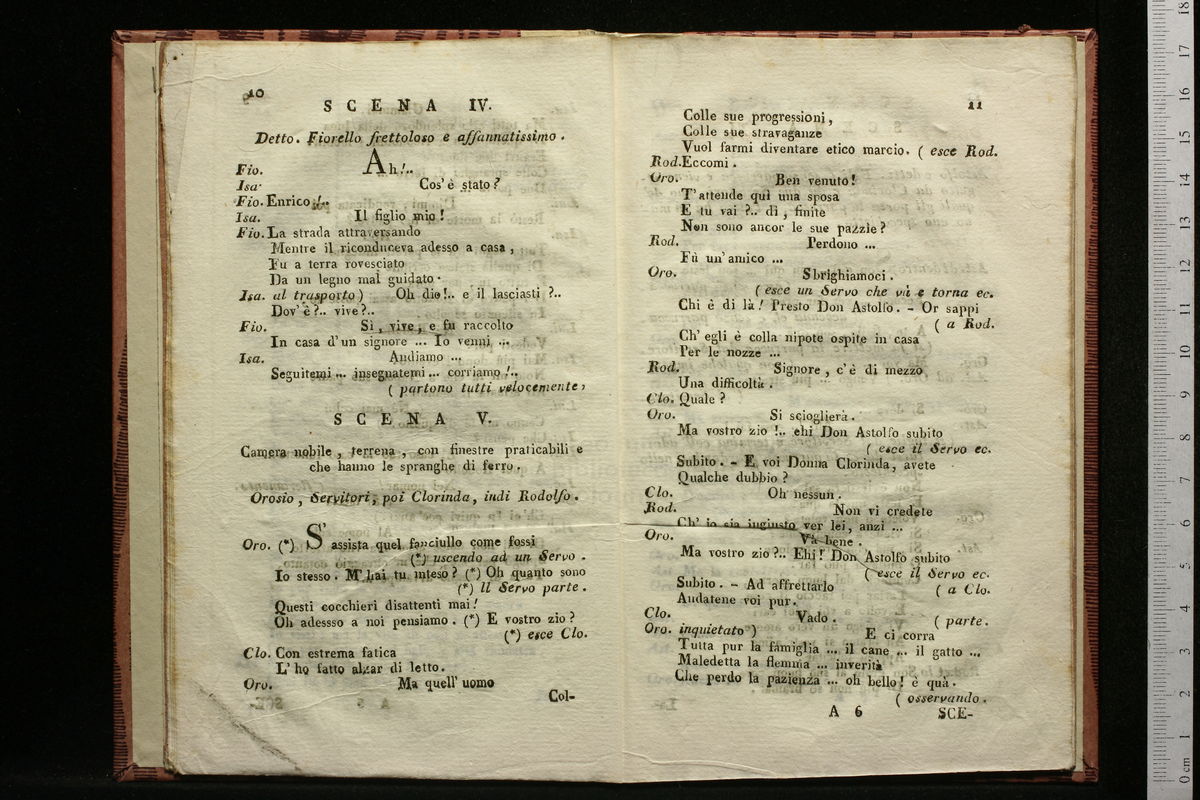 10
SCENA IV.
Detto. Fiorello frettoloso e affannatissimo.
Fio. Ah!..
Isa. Cos' è stato?
Fio. Enrico!..
Isa. Il figlio mio!
Fio. La strada attraversando
Mentre il riconduceva adesso a casa,
Fu a terra rovesciato
Da un legno mal guidato.
Isa. al trasporto) Oh dio!.. e il lasciasti?..
Dov' è?.. vive?..
Fio. Sì, vive, e fu raccolto
In casa d' un signore ... Io venni ...
Isa. Andiamo ...
Seguitemi ... insegnatemi ... corriamo!..
(partono tutti velocemente,
SCENA V.
Camera nobile, terrena, con finestre praticabili e
che hanno le spranghe di ferro.
Orosio, Servitori, poi Clorinda, indi Rodolfo.
Oro. (*) S' assista quel fanciullo come fossi
(*) uscendo ad un Servo.
Io stesso. M' hai tu inteso? (*) Oh quanto sono
(*) Il Servo parte.
Questi cocchieri disattenti mai!
Oh adessso a noi pensiamo. (*) E vostro zio?
(*) esce Clo.
Clo. Con estrema fatica
L' ho fatto alzar di letto.
Oro. Ma quell' uomo
Col-
A 5 SCE-
11
Colle sue progressioni,
Colle sue stravaganze
Vuol farmi diventare etico marcio. (esce Rod.
Rod. Eccomi.
Oro. Ben venuto!
T' attende quì una sposa
E tu vai?.. dì, finite
Non sono ancor le sue pazzie?
Rod. Perdono ...
Fù un' amico ...
Oro. Sbrighiamoci.
(esce un Servo che và e torna ec.
Chi è di là! Presto Don Astolfo. - Or sappi
(a Rod.
Ch' egli è colla nipote ospite in casa
Per le nozze ...
Rod. Signore, c' è di mezzo
Una difficoltà.
Clo. Quale?
Oro. Si scioglierà.
Ma vostro zio!.. ehi Don Astolfo subito
(esce il Servo ec.
Subito. - E voi Donna Clorinda, avete
Qualche dubbio?
Clo. Oh nessun.
Rod. Non vi credete
Ch' io sia ingiusto ver lei, anzi ...
Oro. Và bene.
Ma vostro zio?.. Ehi! Don Astolfo subito
(esce il Servo ec.
Subito. - Ad affrettarlo (a Clo.
Andatene voi pur.
Clo. Vado. (parte.
Oro. inquietato) E ci corra
Tutta pur la famiglia ... il cane ... il gatto ...
Maledetta la flemma ... inverità
Che perdo la pazienza ... oh bello! è quà.
(osservando.
A 6 SCE-